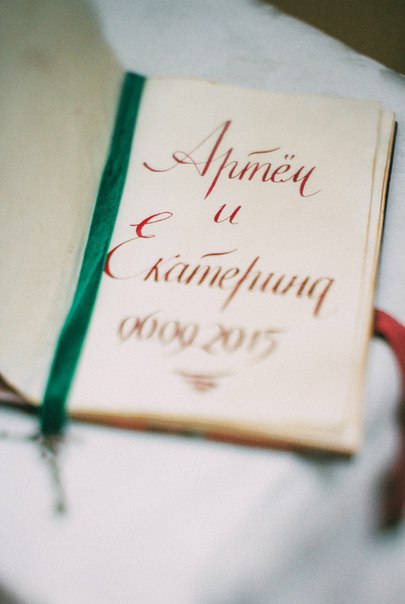 Артём
и
Екатерина
06092015